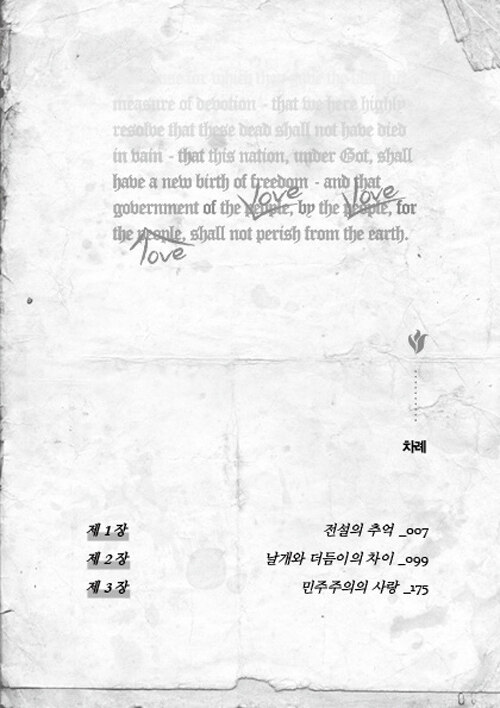 cause for which they gave the last full
measure of devotion - that we here highly
resolve that these dead shall not have died
in vain - that this nation, under Got, shall
have a new birth of freedom - and that
love love
government of the people, by the people, for
the people, shall not perish from the earth.
love
차례
제 1 장 전설의 추억 _007
제 2 장 날개와 더듬이의 차이 _099
제 3 장 민주주의의 사랑 _175